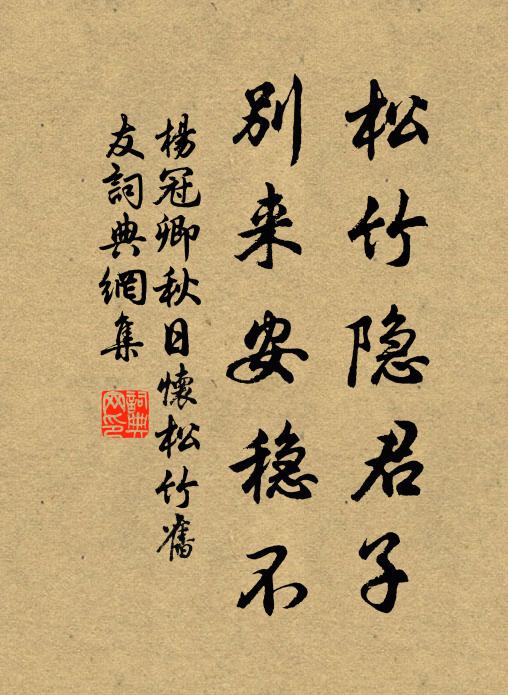 松竹隐君子
别来安稳不
楊冠卿秋日懷松竹舊
友詞典網集
詞典网印